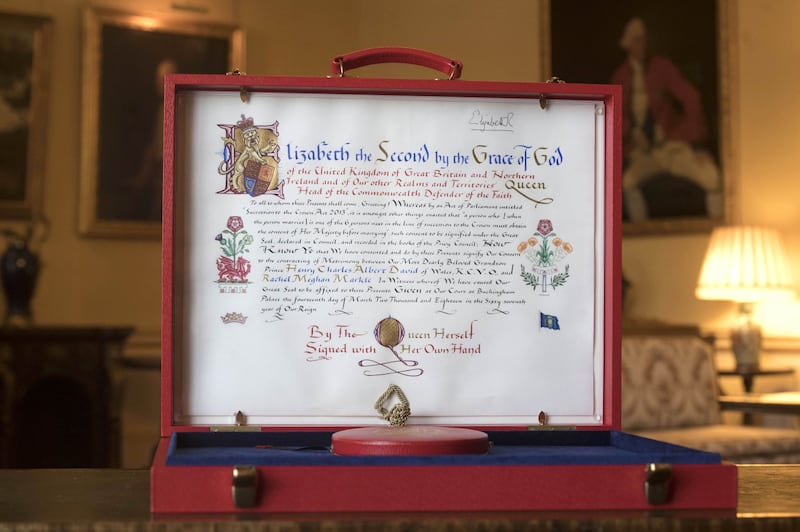 Elizabeth R
Elizabeth the Second by the Grace of God
of the United Kingdom of Great Britain and Northern
Ireland and of Our other Realms and Territories Queen
Head of the Commonwealth Defender of the Faith
To all to whom these Presents shall come, Greeting! Whereas by an Act of Parliament entitled
"Succession to the Crown Act 2013", it is amongst other things enacted that "a person who [when
the person marries] is one of the 6 persons next in the line of succession to the Crown must obtain
the consent of Her Majesty before marrying", such consent to be signified under the Great
Seal, declared in Council, and recorded in the books of the Privy Council; Now
Know Ye that We have consented and do by these Presents signify Our Consent
to the contracting of Matrimony between Our Most Dearly Beloved Grandson
Prince Henry Charles Albert David of Wales, K.C.V.O., and
Rachel Meghan Markle. In Witness whereof We have caused Our
Great Seal to be affixed to these Presents. Given at Our Court at Buckingham
Palace the fourteenth day of March Two Thousand and Eighteen in the Sixty-seventh
year of Our Reign
By The Queen Herself
Signed with Her Own Hand